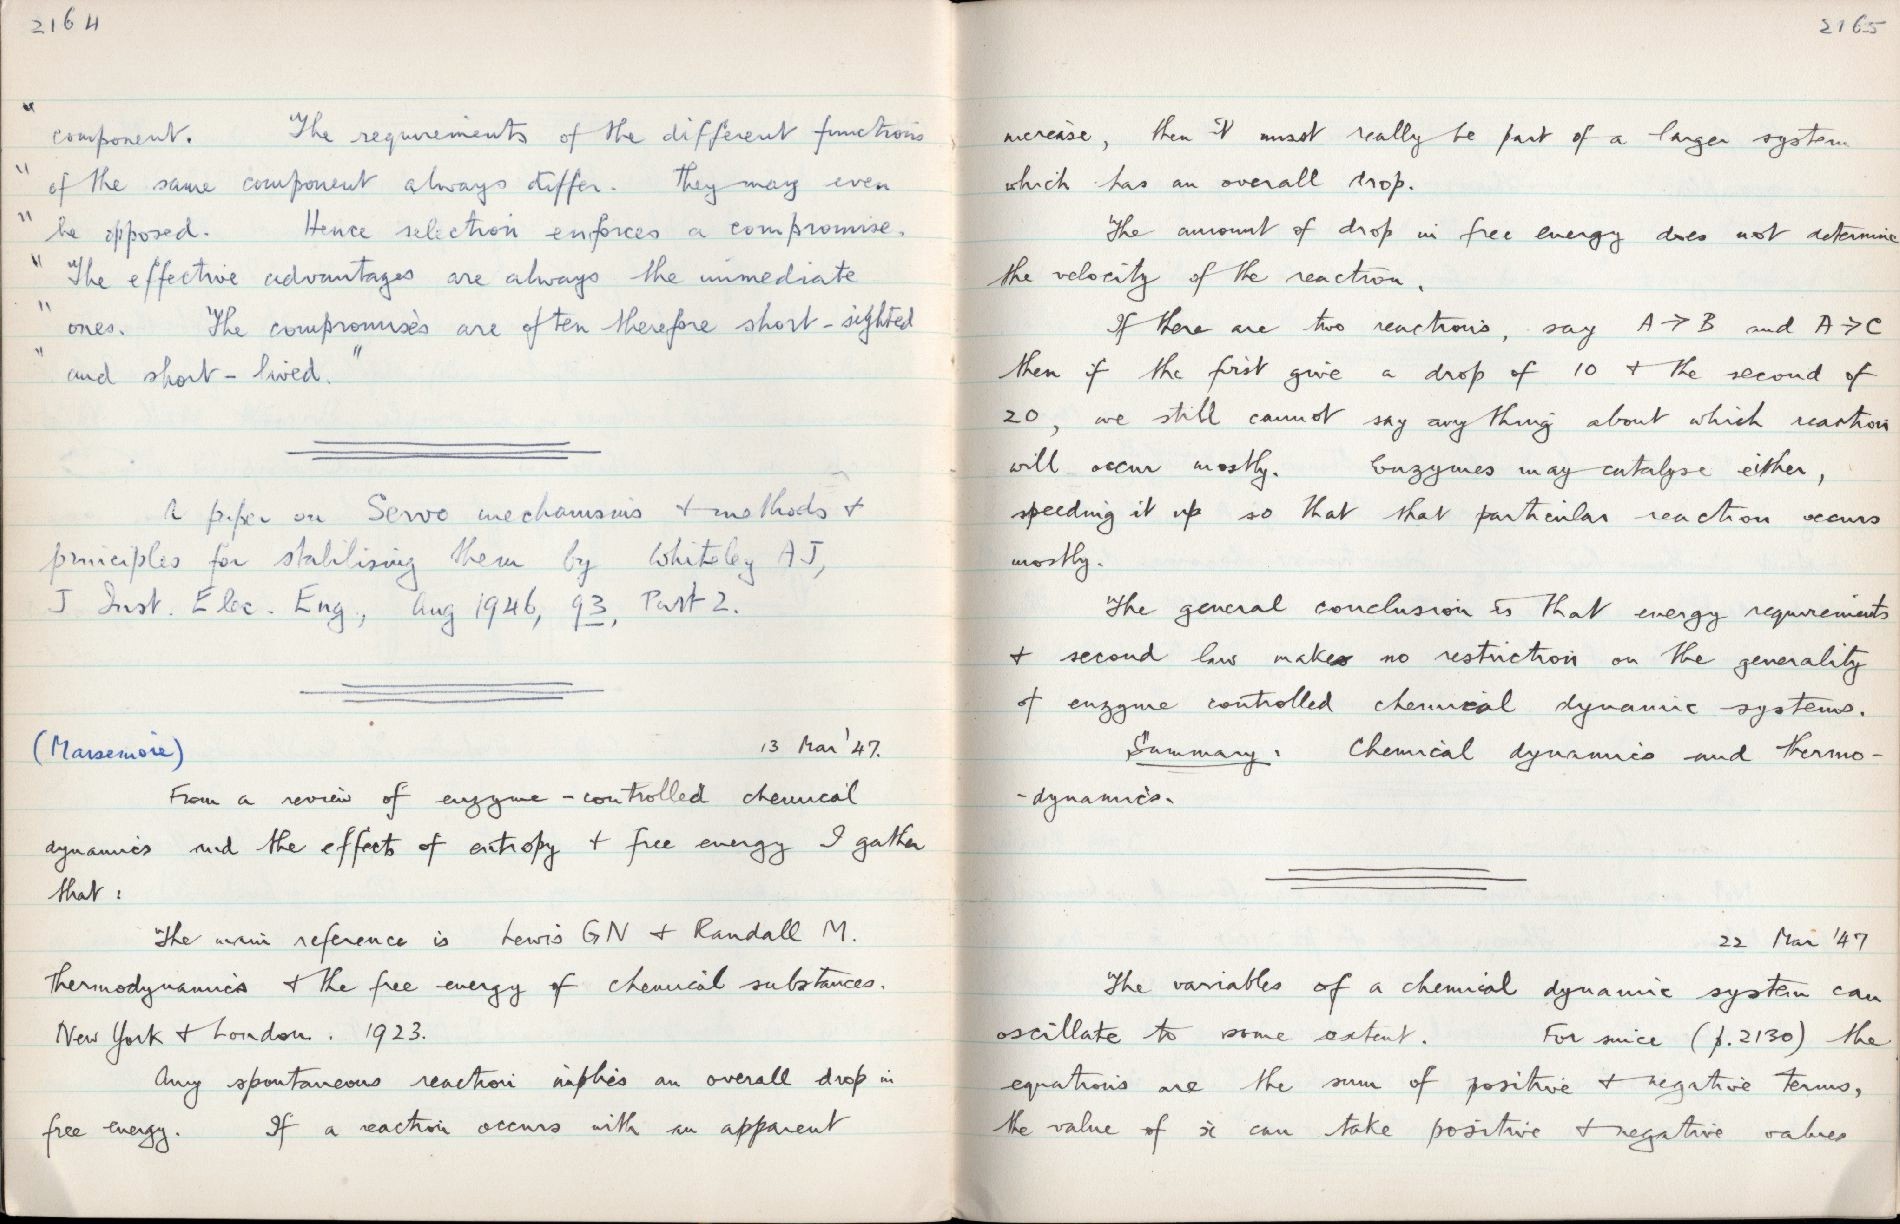 2164
" component. The requirements of the different functions
" of the same component always differ. They may even
" be opposed. Hence selection enforces a compromise.
" The effective advantages are always the immediate
" ones. The compromises are often therefore short-sighted
" and short-lived."
A paper on Servo mechanisms + methods +
principles for stabilising them by Whiteley AJ,
J Inst. Elec. Eng., Aug 1946, 93, Part 2.
(Marsemore) 13 Mar '47.
From a review of enzyme-controlled chemical
dynamics and the effects of entropy + free energy I gather
that:
The main reference is Lewis GN + Randall M.
Thermodynamics + the free energy of chemical substances.
New York + London. 1923.
Any spontaneous reaction implies an overall drop in
free energy. If a reaction occurs with an apparent
2165
increase, then it must really be part of a larger system
which has an overall drop.
The amount of drop in free energy does not determine
the velocity of the reaction.
If there are two reactions, say A→B and A→C
then if the first give a drop of 10 + the second of
20, we still cannot say anything about which reaction
will occur mostly. Enzymes may catalyse either,
speeding it up so that that particular reaction occurs
mostly.
The general conclusion is that energy requirements
+ second law makes no restriction on the generality
of enzyme controlled chemical dynamic systems.
Summary: Chemical dynamics and thermo-
-dynamics.
22 Mar '47
The variables of a chemical dynamic system can
oscillate to some extent. For since (p.2130) the
equations are the sum of positive + negative terms,
the value of ẋ can take positive + negative values